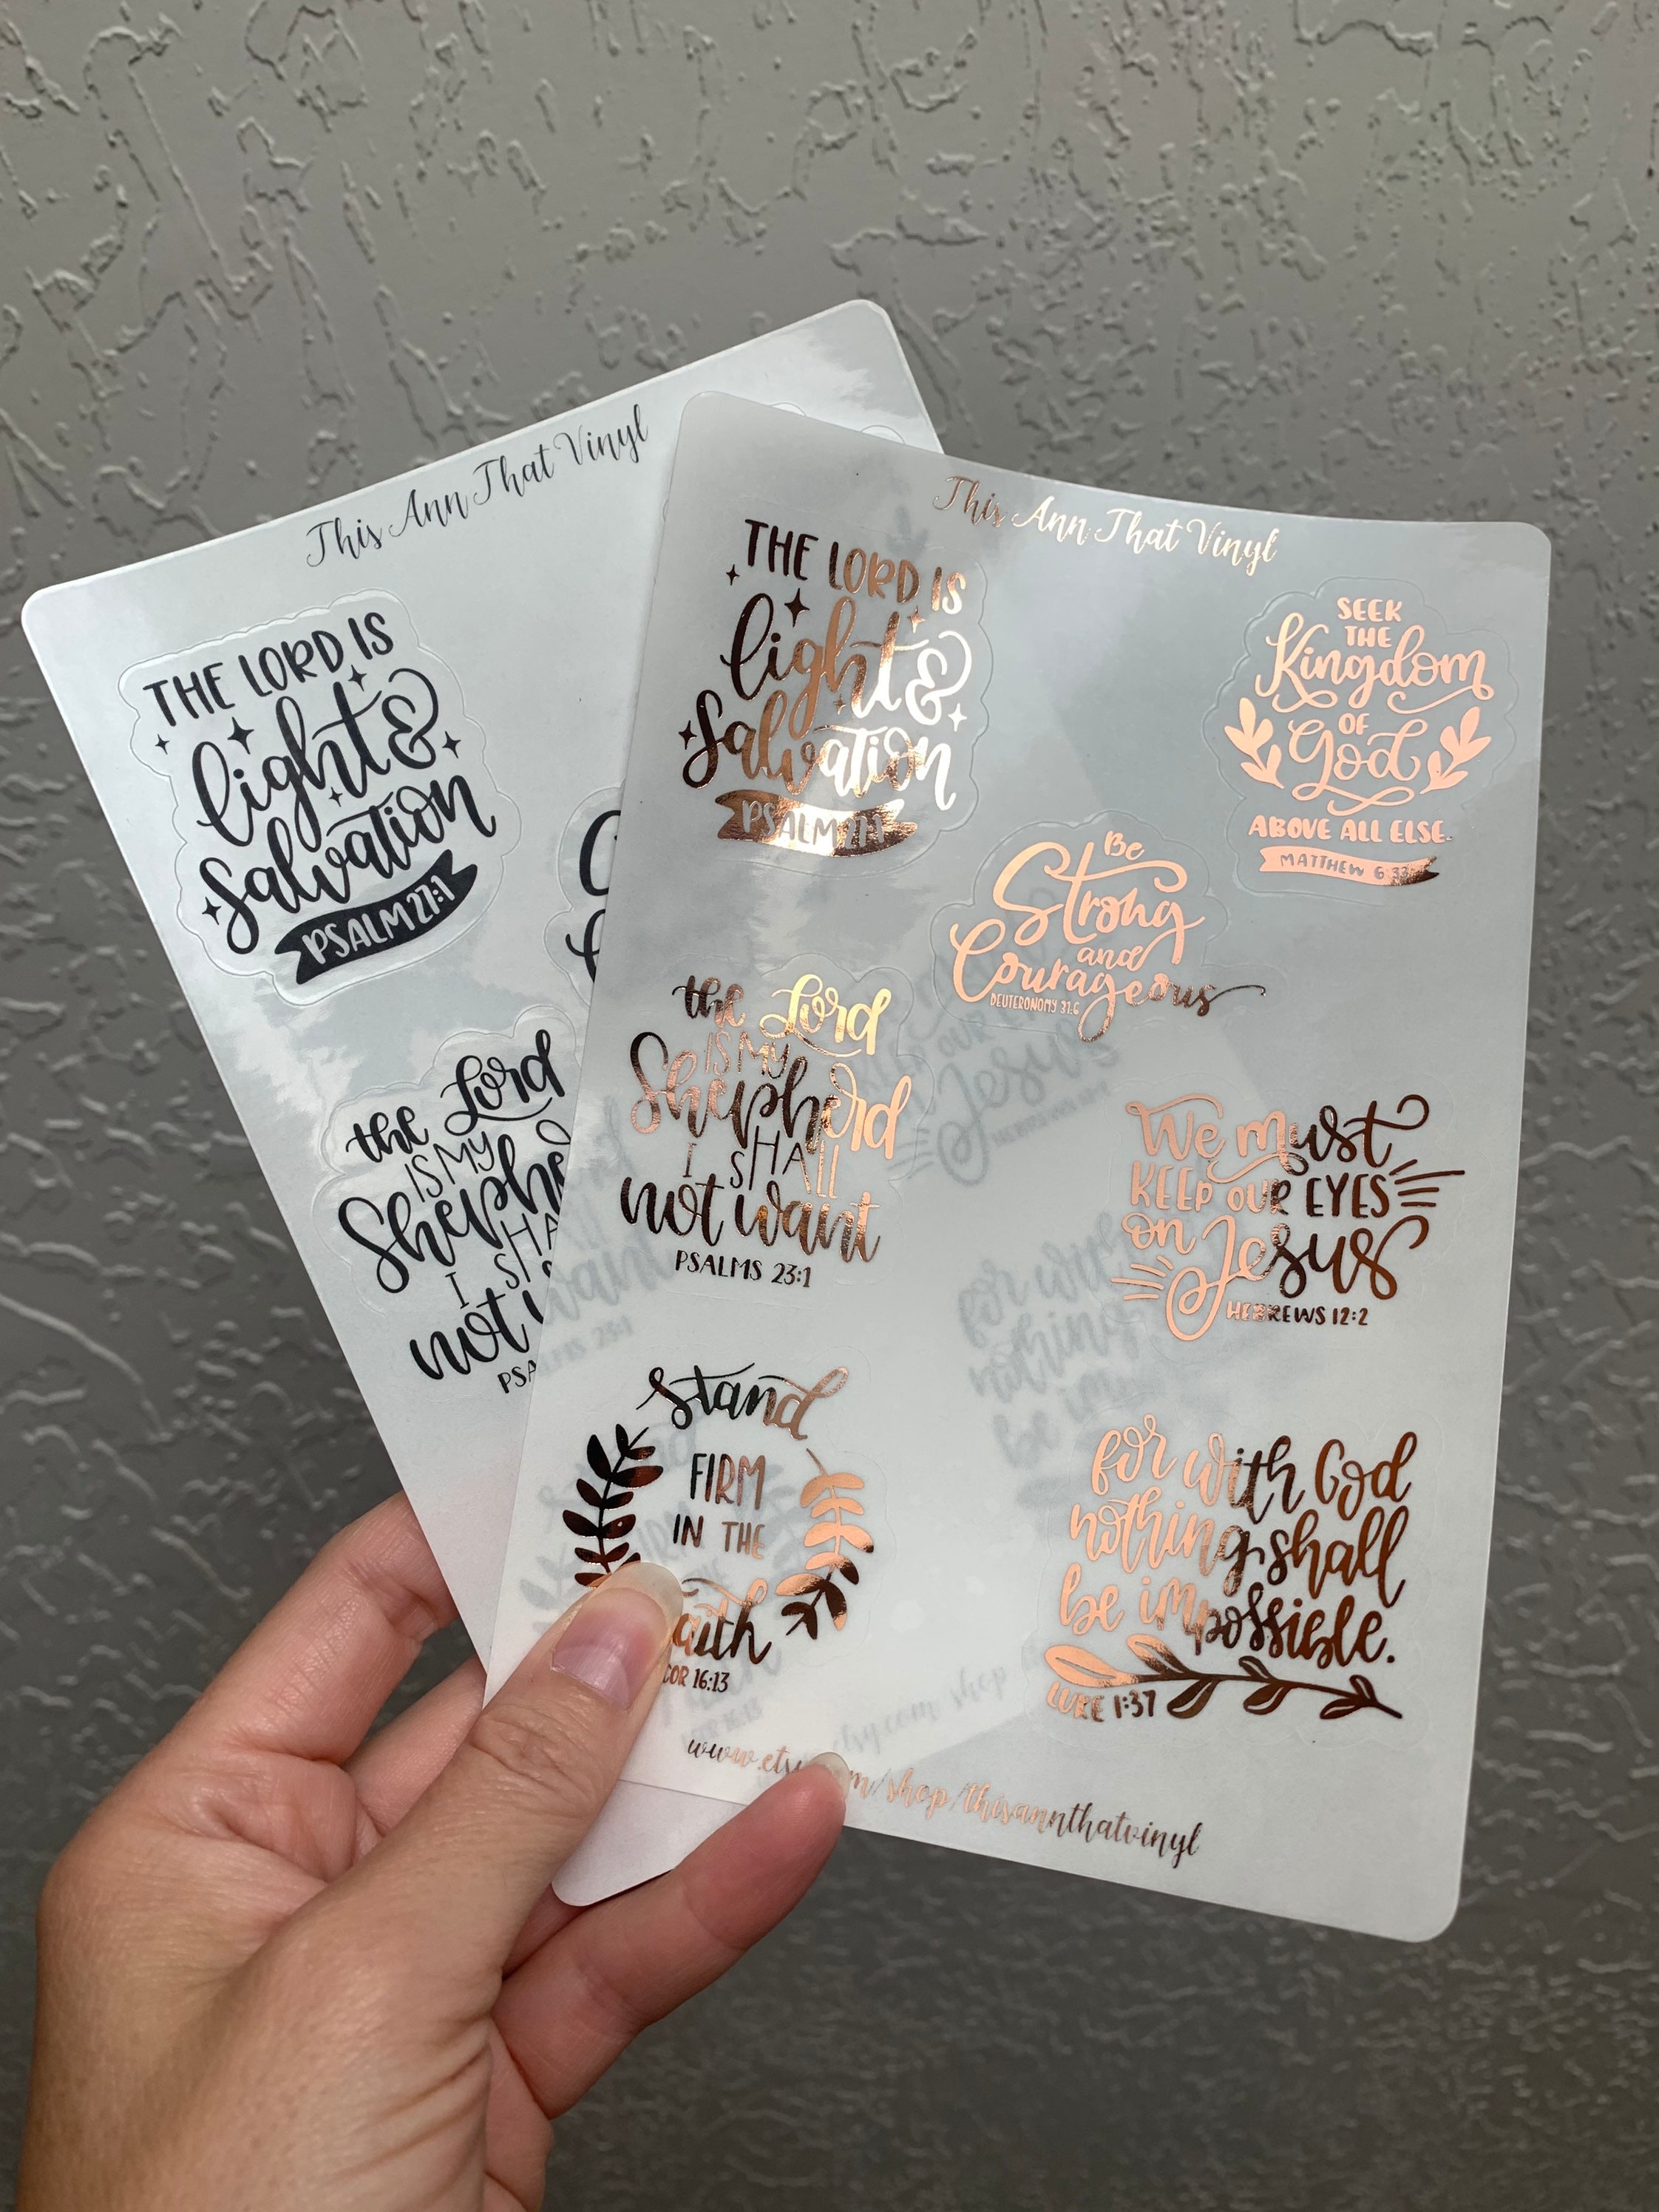 This Ann That Vinyl
THE LORD IS
light &
Salvation
PSALM 27:1
the Lord
IS MY
I
not
This Ann That Vinyl
THE LORD IS
light &
Salvation
PSALM 27:1
SEEK
THE
Kingdom
OF
God
ABOVE ALL ELSE.
MATTHEW 6:33
Be
Strong
and
Courageous
DEUTERONOMY 31:6
the Lord
IS MY
Shepherd
I SHALL
not want
PSALMS 23:1
We must
KEEP OUR EYES
on Jesus
HEBREWS 12:2
Stand
FIRM
IN THE
aith
COR 16:13
for with God
nothing shall
be impossible.
LUKE 1:37
www.ets m/shop/thisannthatvinyl